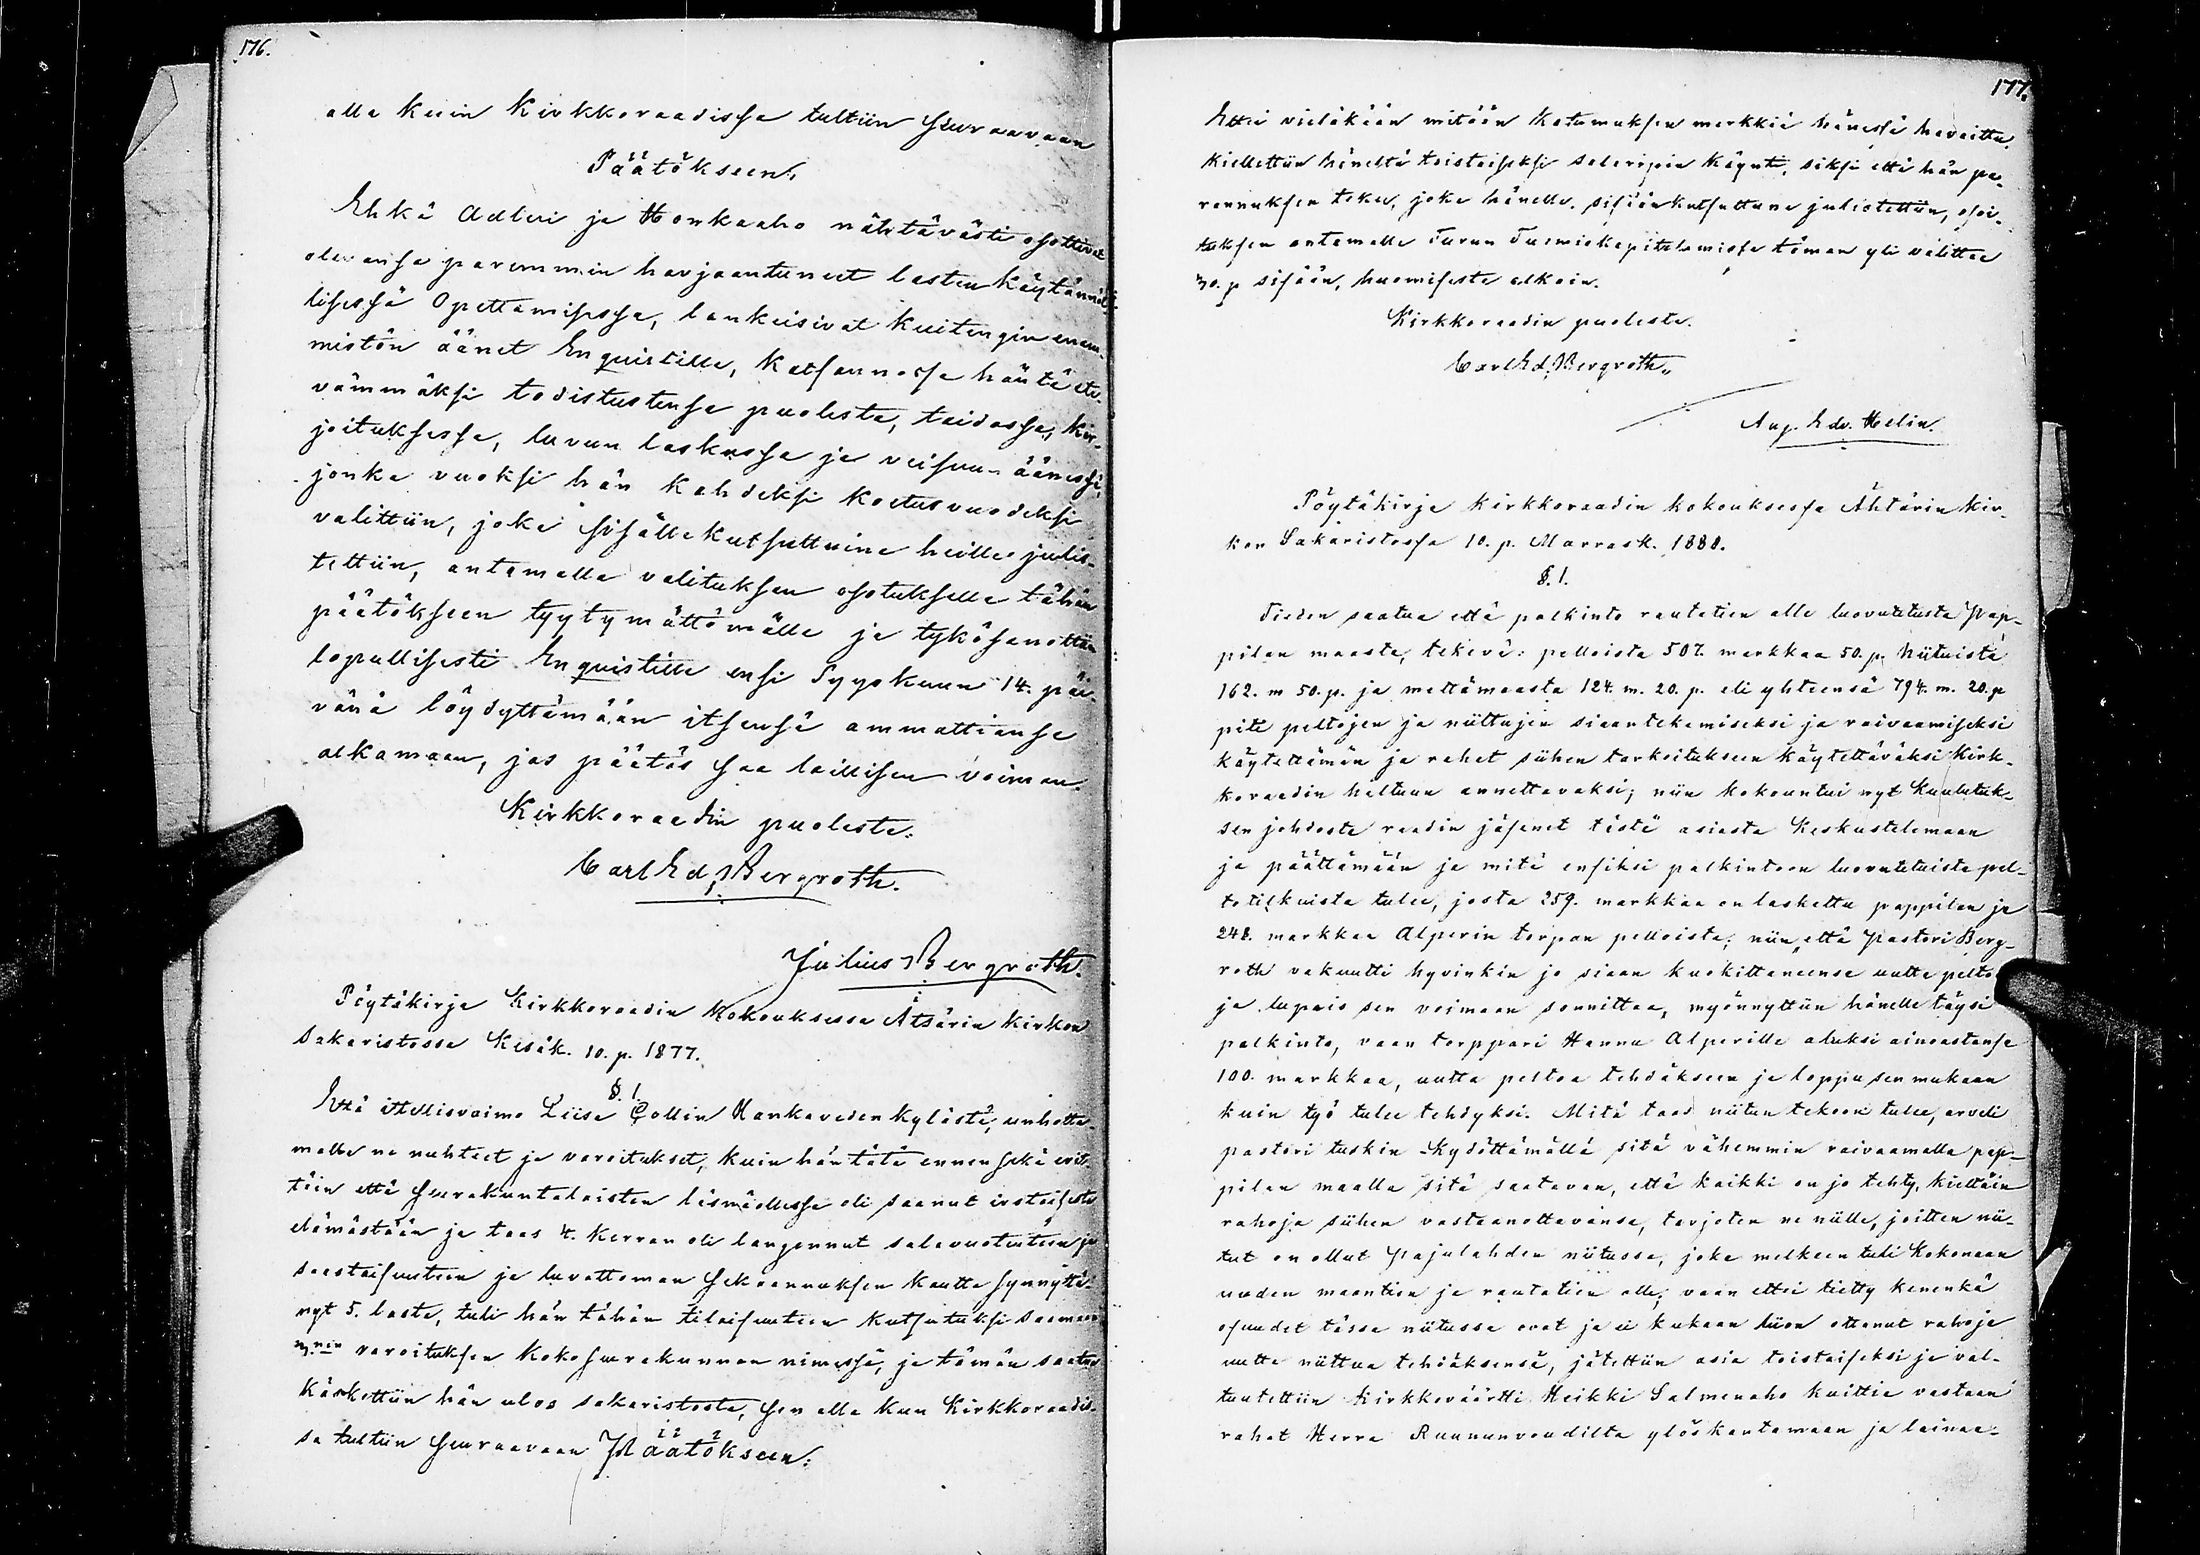 176.
alla kuin Kirkkoraadissa tultiin seuraavaan
Päätökseen:
Ehkä Adleri ja Honkaaho nähtävästi osottivat
olevansa paremmin harjaantuneet lasten käytännöl-
lisessä Opettamisessa, lankeisivat kuitengin enem-
mistön äänet Enquistille, katsannossa häntä ete-
vämmäksi todistustensa puolesta, taidossa, kir-
joituksessa, luvun laskussa ja veisuu-äänessä,
jonka vuoksi hän kahdeksi koetusvuodeksi
valittiin, joka sisällekutsuttuina heille julis-
tettiin, antamalla valituksen osotukselle tähän
päätökseen tyytymättömälle ja tykösanottiin
lopullisesti Enquistille ensi Syyskuun 14. päi-
vänä löydyttämään itsensä ammattiansa
alkamaan, jos päätös saa laillisen voiman.
Kirkkoraadin puolesta:
Carl Ed. Bergroth.
Julius Bergroth.
Pöytäkirja Kirkkoraadin Kokouksessa Ätsärin kirkon
Sakaristossa Kesäk. 10. p. 1877.
§. 1.
Että itellisvaimo Liisa Collin Hankaveden kylästä, unhotta-
malla ne nuhteet ja varoitukset, kuin hän tätä ennen sekä erit-
täin että seurakuntalaisten läsnäollessa oli saanut irstaisesta
elämästään ja taas 4. kerran oli langennut salavuoteuteen ja
saastaisuuteen ja luvattoman sekaannuksen kautta synnyttä-
nyt 5. lasta, tuli hän tähän tilaisuuteen kutsutuksi saamaan
3:nen varoituksen koko seurakunnan nimessä, ja tämän saatua
käskettiin hän ulos sakaristosta, sen alla kun Kirkkoraadis-
sa tultiin seuraavaan Päätökseen:
177.
Ettei vieläkään mitään katumuksen merkkiä hänessä havaittu,
kiellettiin häneltä toistaiseksi salaripin käynti, siksi että hän pa-
rannuksen tekee, joka hänelle, sisäänkutsuttuna julistettiin, osoi-
tuksen antamalla Turun Tuomiokapitelumissa tämän yli valittaa
30. p sisään, huomisesta alkain.
Kirkkoraadin puolesta.
Carl Ed. Bergroth.
Aug. Edv. Helin.
Pöytäkirja Kirkkoraadin kokouksessa Ähtärin Kir-
kon Sakaristossa 10. p. Marrask. 1888.
§. 1.
Tiedon saatua että palkinto rautatien alle luovutetusta Pap-
pilan maasta, tekevä: pelloista 507. markkaa 50. p. Niituista
162. m 50. p. ja mettämaasta 124. m. 20. p. eli yhteensä 794. m. 20. p
piti peltojen ja niittujen siaan tekemiseksi ja raivaamiseksi
käytettämän ja rahat siihen tarkoitukseen käytettäväksi Kirk-
koraadin haltuun annettavaksi; niin kokountui nyt Kuulutuk-
sen johdosta raadin jäsenet tästä asiasta keskustelemaan
ja päättämään ja mitä ensiksi palkintoon luovutetuista pel-
totilkuista tulee, josta 259. markkaa on laskettu pappilan ja
248. markkaa Alperin torpan pelloista; niin että Pastori Berg-
roth vakuutti hyvinkin jo siaan kuokittaneensa uutta pelto
ja lupais sen voimaan sonnittaa, myönnyttiin hänelle täysi
palkinto, vaan torppari Hannu Alperille aluksi ainoastansa
100. markkaa, uutta peltoa tehdäkseen ja loppu sen mukaan
kuin työ tulee tehdyksi. Mitä taas niitun tekoon tulee, arveli
pastori tuskin kydöttämällä sitä vähemmin raivaamalla pap-
pilan maalla sitä saatavan, että kaikki on jo tehty, kieltäin
rahoja siihen vastaanottavansa, tarjoten ne niille, joitten nii-
tut on ollut Pajulahden niitussa, joka melkeen tuli Kokonaan
uuden maantien ja rautatien alle; vaan ettei tietty kenenkä
osuudet tässä niitussa ovat ja ei kukaan liion ottanut rahoja
uutta niittua tehdäksensä, jätettiin asia toistaiseksi ja val-
tuutettiin kirkkoväärtti Heikki Salmenaho kuittia vastaan
rahat Herra Ruununvoudilta ylöskantamaan ja lainaa-